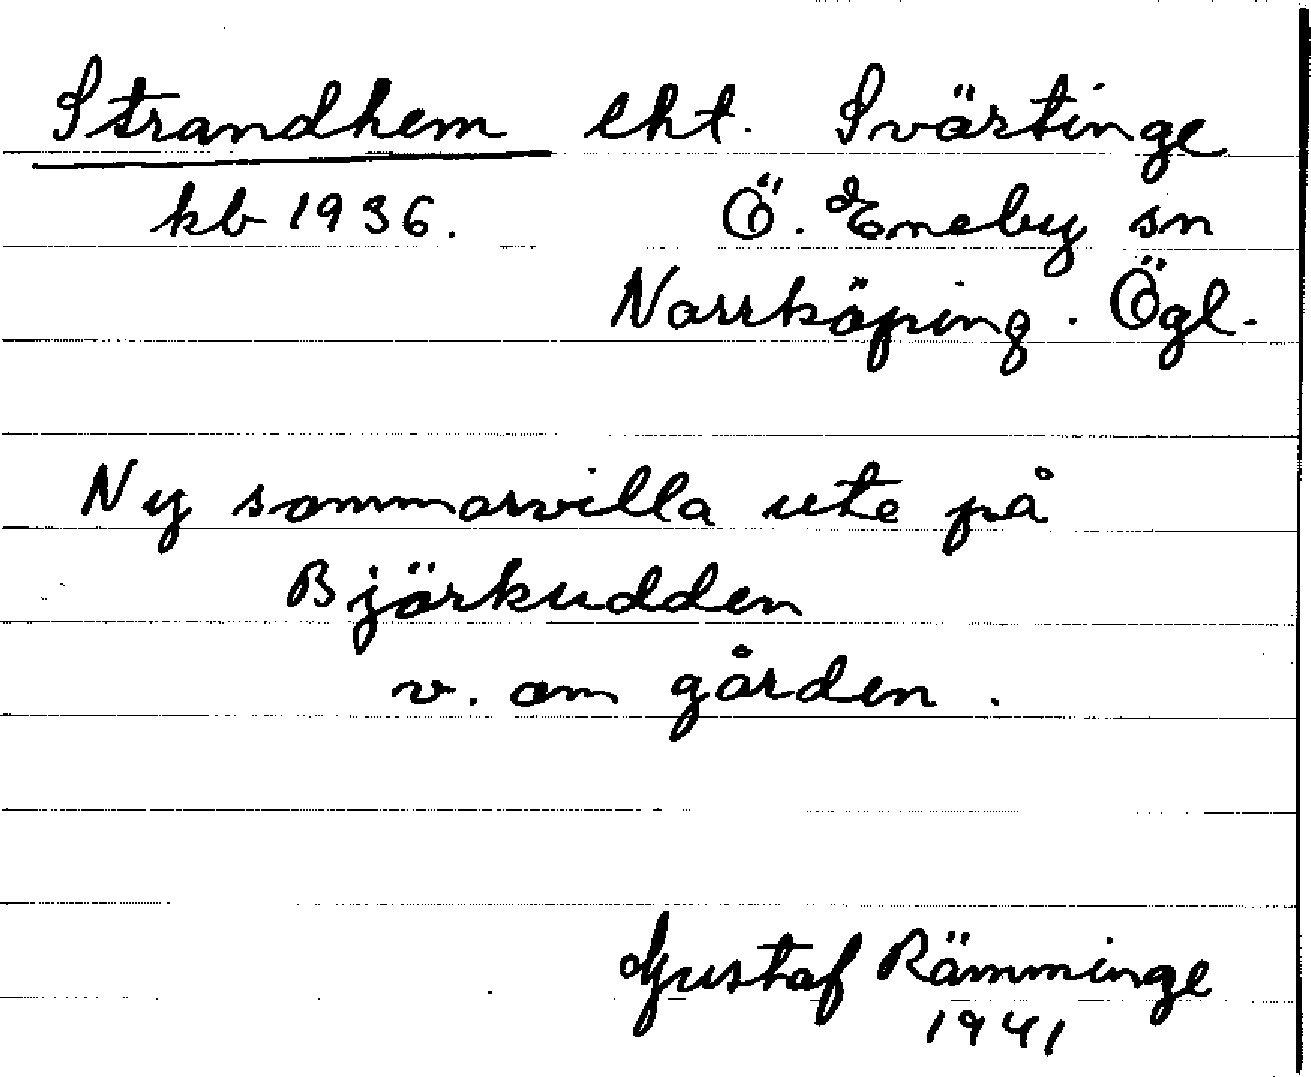 Strandhem lht. Svärtinge
kb 1936. Ö. Eneby sn
Norrköping. Ögl.
Ny sommarvilla ute på
Björkudden
v. om gården.
Gustaf Rämminge
1941